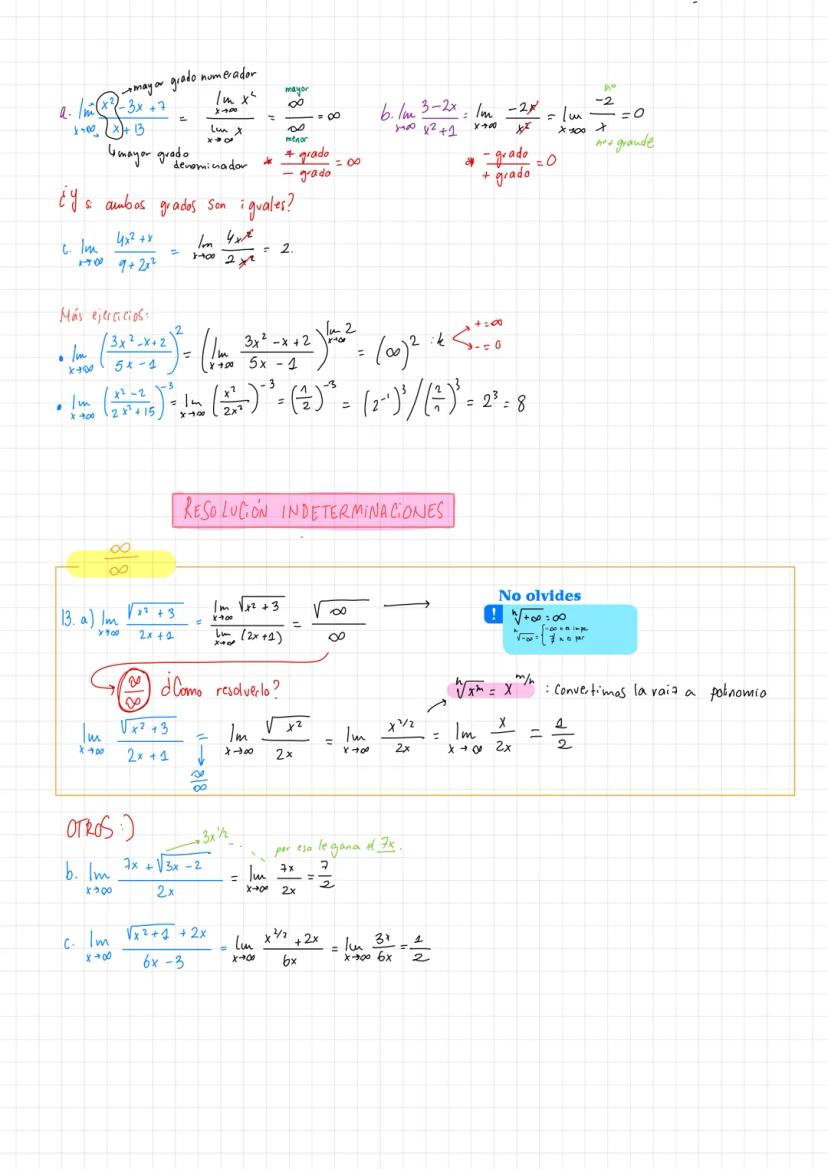 mayor grado numerador
a. lim x→∞ (x² - 3x + 7)/(x + 13) = (lim x→∞ x²)/(lim x→∞ x) = mayor ∞/∞ menor = ∞
mayor grado denominador
* + grado/- grado = ∞
b. lim x→∞ (3 - 2x)/(x² + 1) = lim x→∞ -2x/x² = lim x→∞ -2/x = 0
nº
nº + grande
* - grado/+ grado = 0
¿Y si ambos grados son iguales?
c. lim x→∞ (4x² + x)/(9 + 2x²) = lim x→∞ 4x²/2x² = 2.
Más ejercicios:
• lim x→∞ ((3x² - x + 2)/(5x - 1))² = (lim x→∞ (3x² - x + 2)/(5x - 1))^(lim x→∞ 2) = (∞)² : k + = ∞ - = 0
• lim x→∞ ((x² - 2)/(2x² + 15))⁻³ = lim x→∞ (x²/2x²)⁻³ = (1/2)⁻³ = (2⁻¹)³ / (2/1)³ = 2³ = 8
RESOLUCIÓN INDETERMINACIONES
∞/∞
13. a) lim x→∞ √(x² + 3)/(2x + 1) = (lim x→∞ √(x² + 3))/(lim x→∞ (2x + 1)) = √∞/∞
No olvides
! ⁿ√+∞ = ∞
∞/∞ ¿Como resolverlo?
ⁿ√xᵐ = x^(m/n) : Convertimos la raiz a polinomio
lim x→∞ √(x² + 3)/(2x + 1) = lim x→∞ √x²/2x = lim x→∞ x^(2/2)/2x = lim x→∞ x/2x = 1/2
∞/∞
OTROS :)
3x^1/2
por eso le gana el 7x.
b. lim x→∞ (7x + √(3x - 2))/2x = lim x→∞ 7x/2x = 7/2
c. lim x→∞ (√(x² + 1) + 2x)/(6x - 3) = lim x→∞ (x^(2/2) + 2x)/6x = lim x→∞ 3x/6x = 1/2